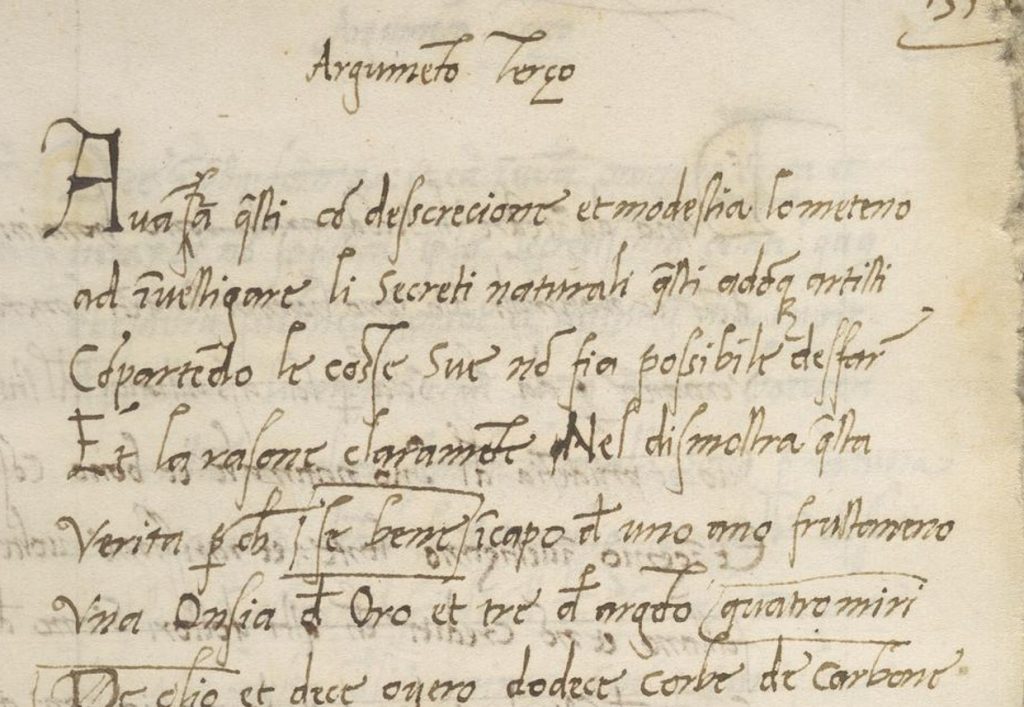 Argumēto Terço
Avanꝑa q̄sti cō desscrecione et modestia lo meteno
ad īvestigare li Secreti naturali q̄sti adōq artisti
Cōpartēdo le cosse Sue nō fia possibile desfar
Et la rasone claramēte Nel dismostra q̄sta
Verita ꝑ ch se bene sīcapo đ uno ano frustameno
Vna Onsia đ Oro et tre đ argēto quatro miri
De olio et dece overo dodece corbe de carbone